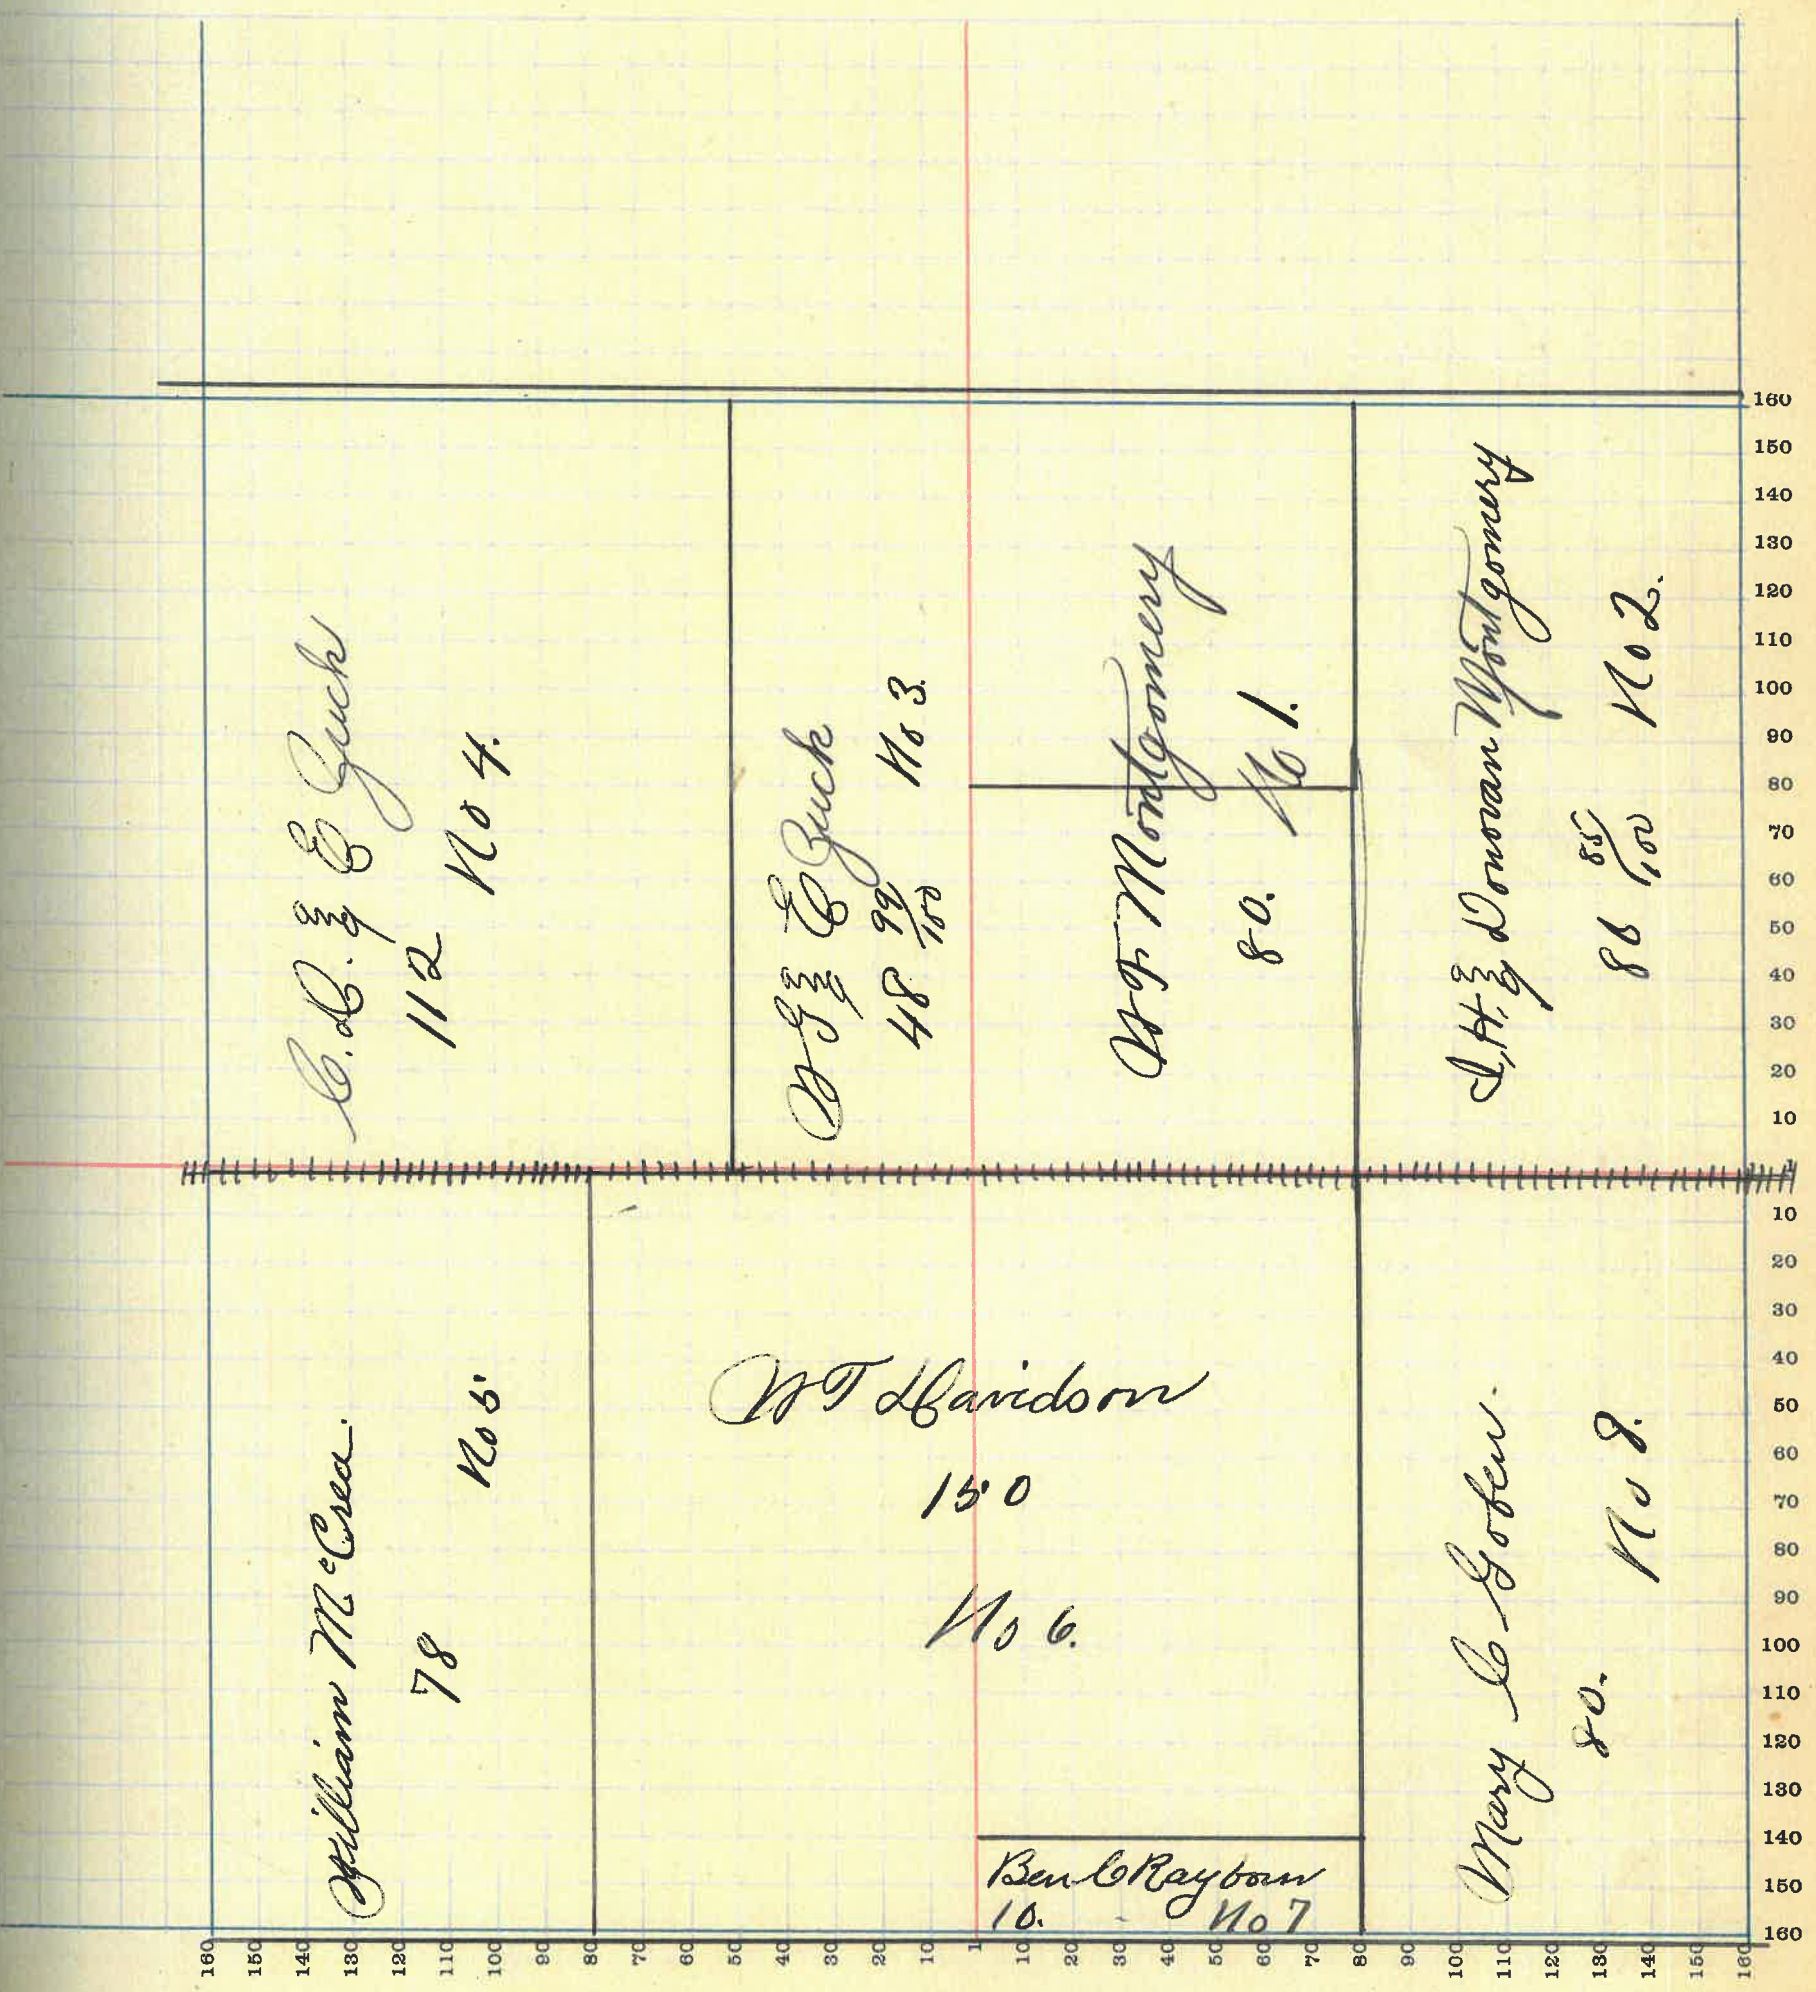 C. D. & E Zuck
112 No 4.
W G & E Zuck
48 99/100 No 3.
W F Montgomery
80. No 1.
I, H, & Donovan Montgomery
86 85/100 No 2.
William McCrea.
78 No 5
W T Davidson
150
No 6.
Ben C Rayborn
10. No 7
Mary C Goben.
80. No 8.
160
150
140
130
120
110
100
90
80
70
60
50
40
30
20
10
1
10
20
30
40
50
60
70
80
90
100
110
120
130
140
150
160
160 150 140 130 120 110 100 90 80 70 60 50 40 30 20 10 1 10 20 30 40 50 60 70 80 90 100 110 120 130 140 150 160